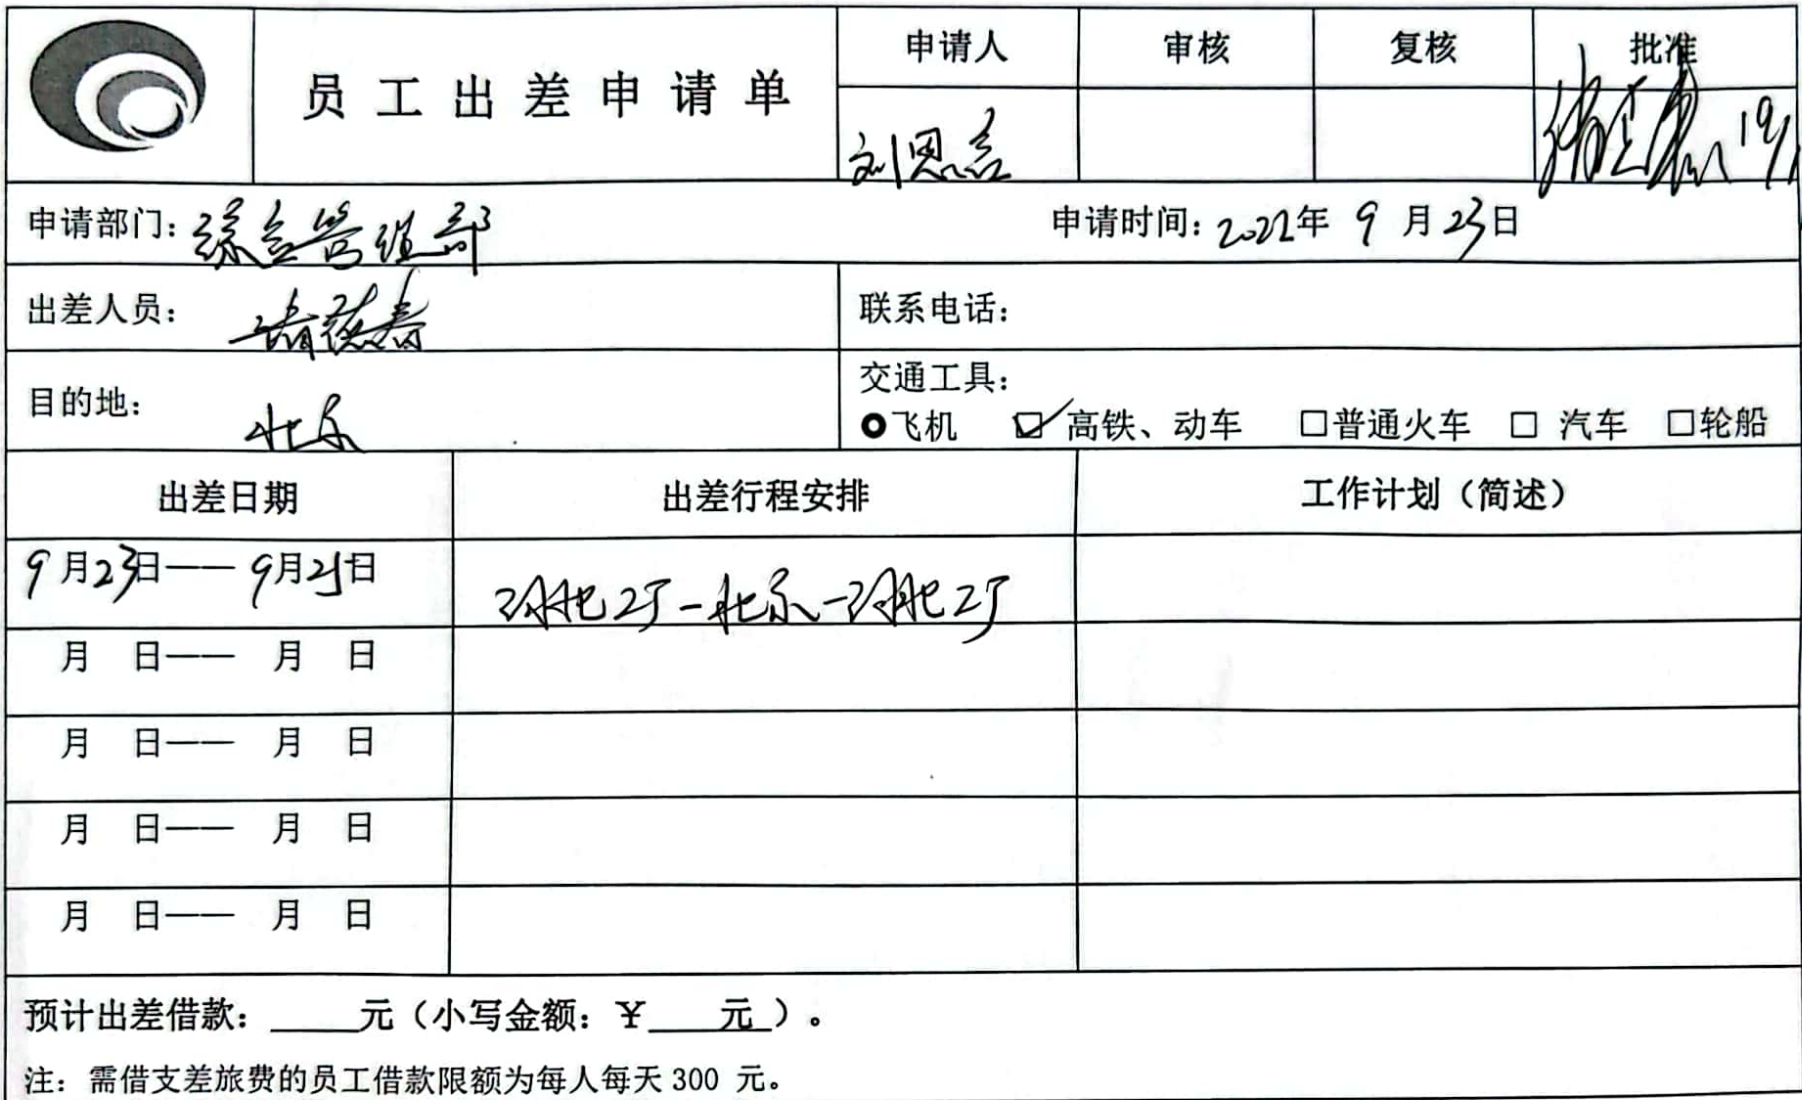 员工出差申请单
申请人 审核 复核 批准
刘恩言
申请部门：综合管理部 申请时间：2022年 9 月 23日
出差人员： 联系电话：
目的地：北京 交通工具：
飞机 ☑高铁、动车 □普通火车 □ 汽车 □轮船
出差日期 出差行程安排 工作计划（简述）
9月23日—— 9月25日 河北工厂-北京-河北工厂
月 日—— 月 日
月 日—— 月 日
月 日—— 月 日
月 日—— 月 日
预计出差借款：____元（小写金额：￥____元）。
注：需借支差旅费的员工借款限额为每人每天 300 元。